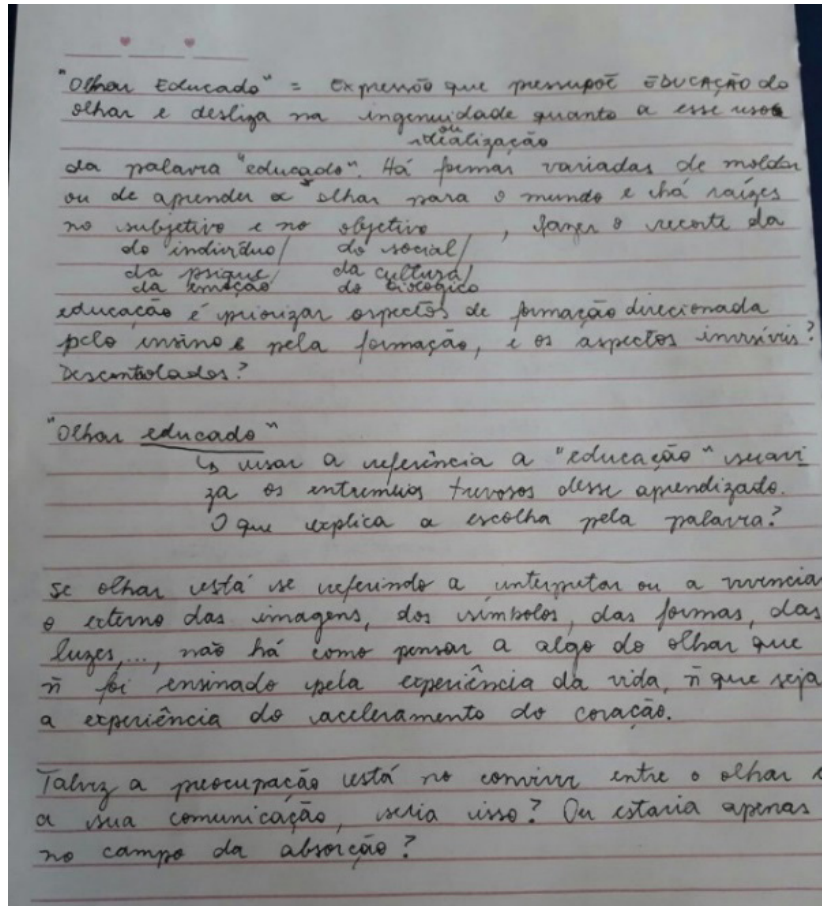 "Olhar Educado" = Expressão que pressupõe EDUCAÇÃO do
olhar e desliza na ingenuidade quanto a esse uso
ou
idealização
da palavra "educado". Há formas variadas de moldar
ou de aprender a olhar para o mundo e há raízes
no subjetivo e no objetivo, fazer o recorte da
do indivíduo/ do social/
da psique/ da cultura/
da emoção do biológico
educação é priorizar aspectos de formação direcionada
pelo ensino e pela formação, e os aspectos invisíveis?
Descontrolados?
"Olhar educado"
↳ usar a referência a "educação" suavi
za os entremeios trevosos desse aprendizado.
O que explica a escolha pela palavra?
Se olhar está se referindo a interpretar ou a vivencia
o externo das imagens, dos símbolos, das formas, das
luzes,..., não há como pensar a algo do olhar que
ñ foi ensinado pela experiência da vida, ñ que seja
a experiência do aceleramento do coração.
Talvez a preocupação está no convivir entre o olhar e
a sua comunicação, seria isso? Ou estaria apenas
no campo da absorção?